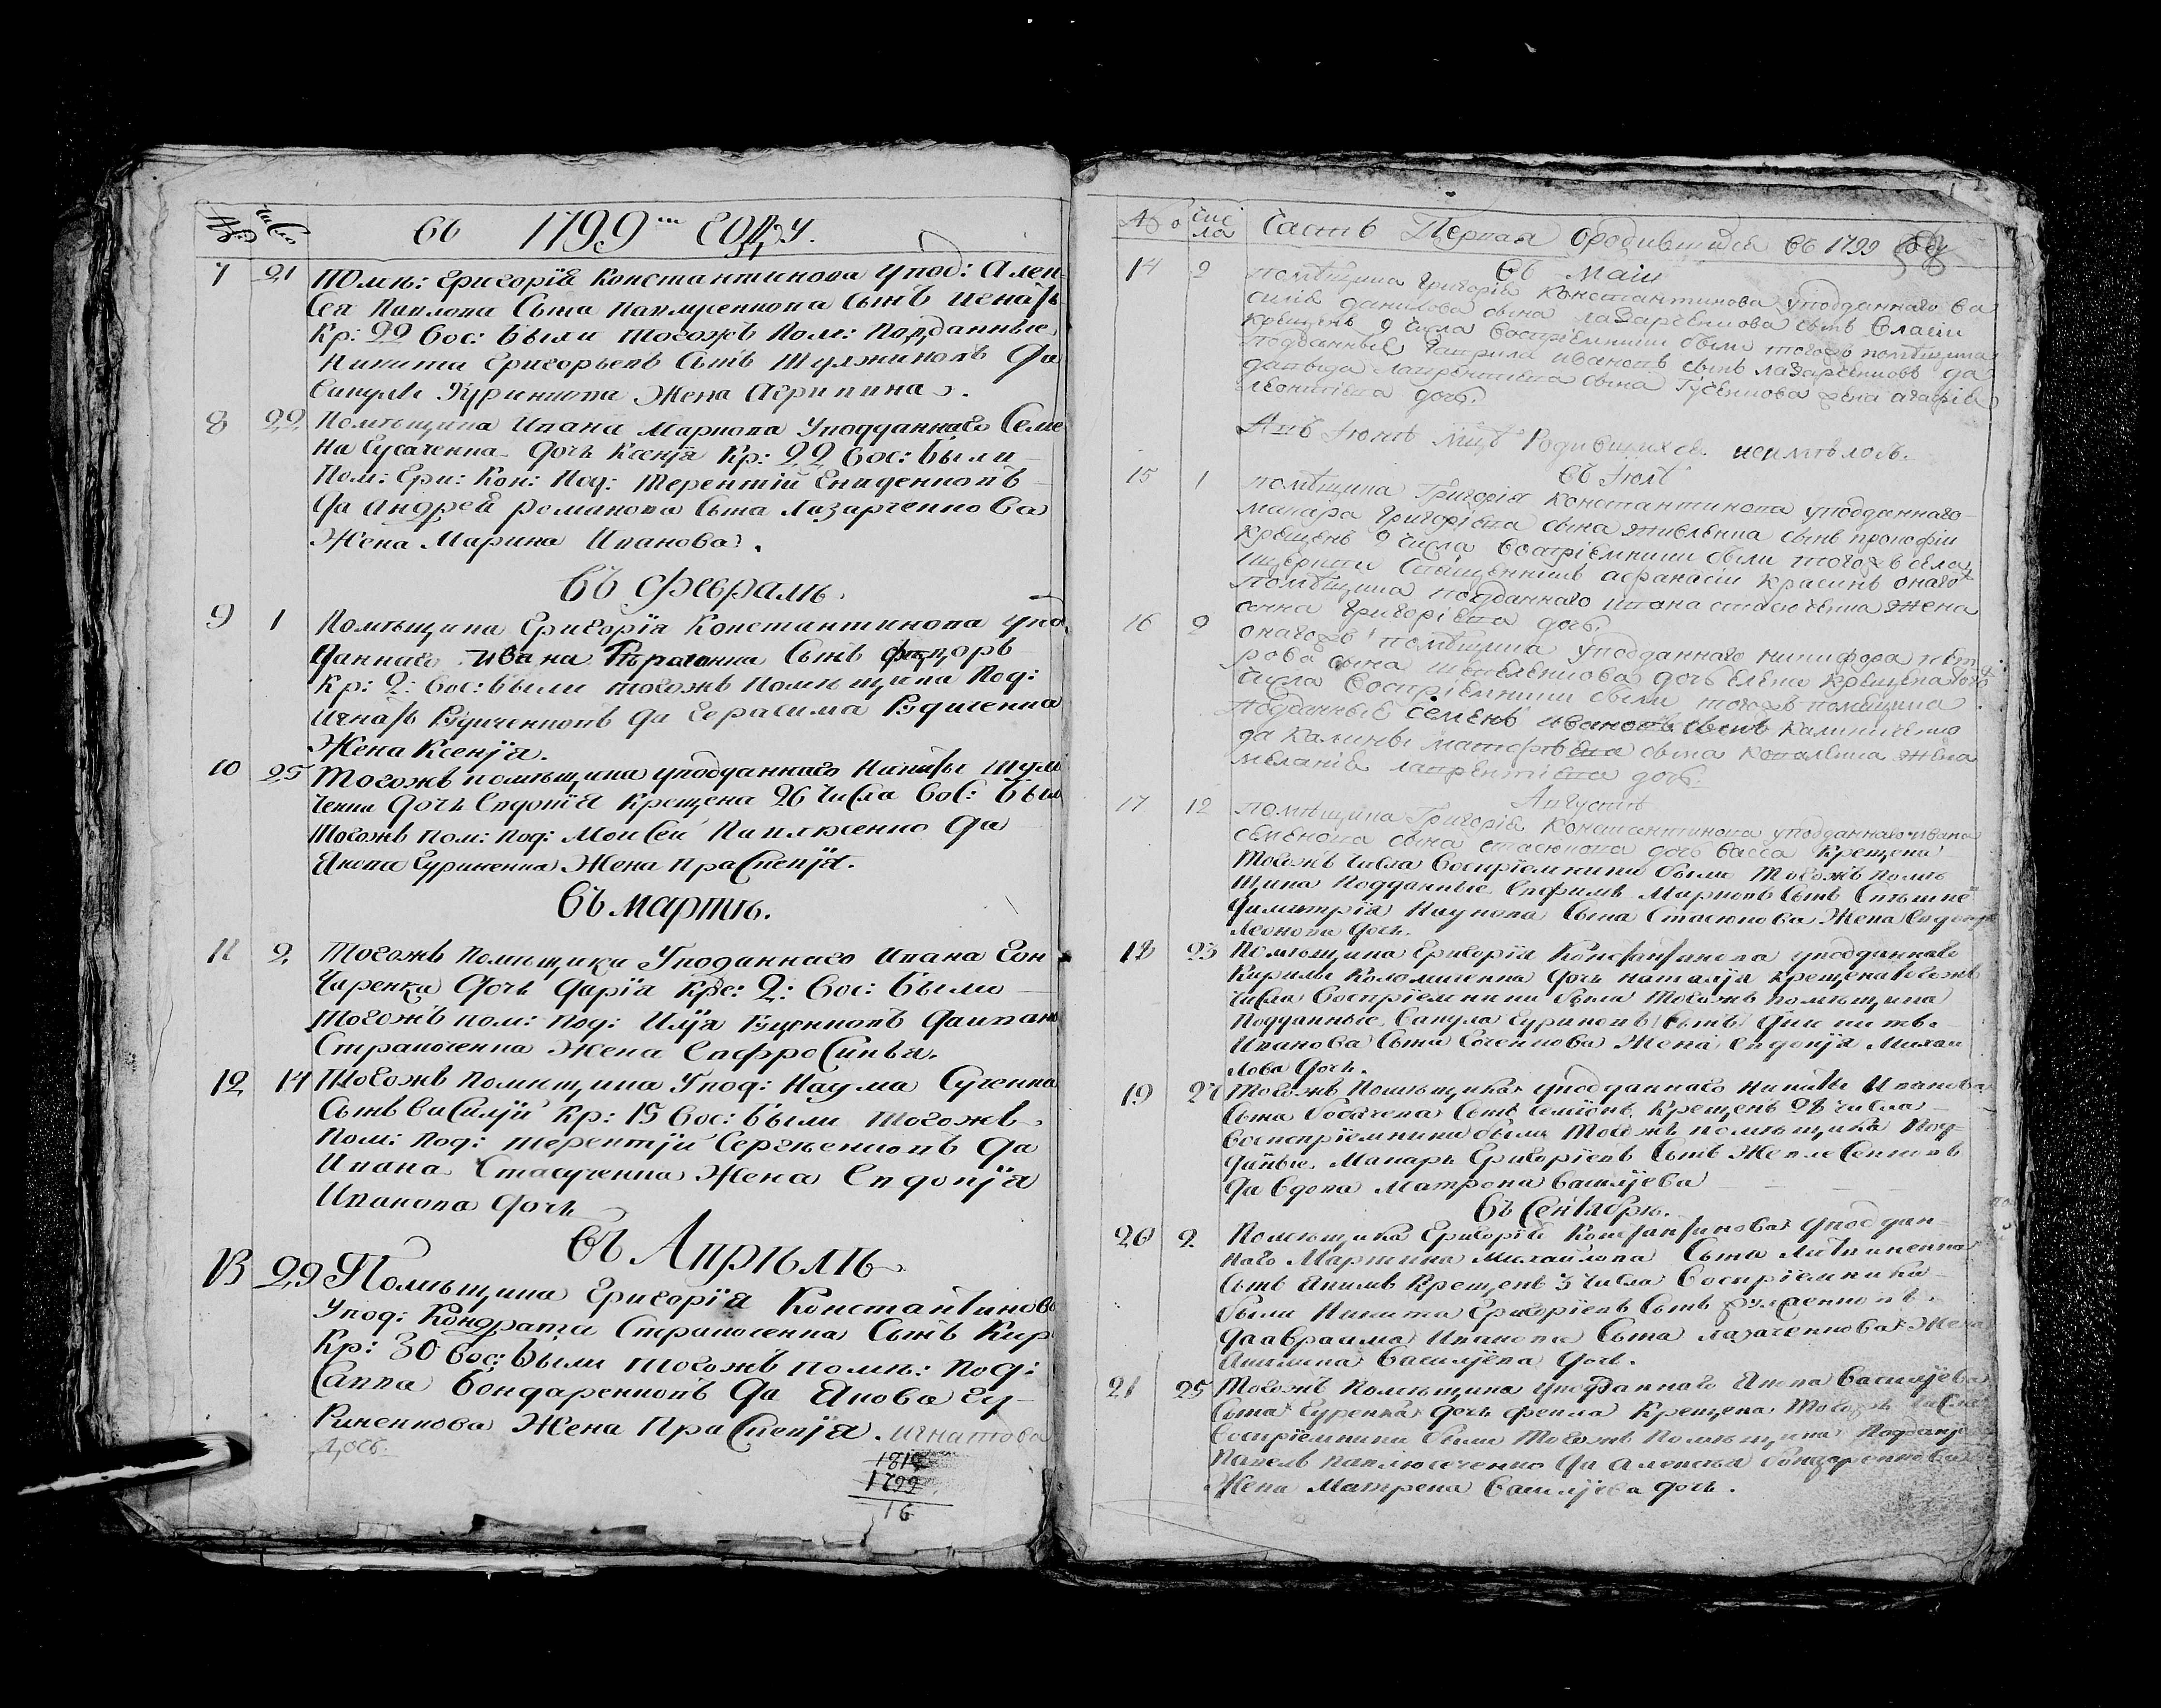 № число
въ 1799м году.
7 21 Помѣ: Григорїя Константинова упод: Алек
сея Павлова Сына Павлусенкова Сынъ Игнатъ
Кр: 22 Вос: были тогожъ Пом: Подданные
Никита Григорьевъ Сынъ Да
Вакулы Жена Агрипина.
8 22 Помѣщика Ивана Маркова Уподданнаго Семе
на Сусаченка Дочь Ксенїя Кр: 22 вос: были
Пом: Гри: Кон: Под: Терентїй
Да Андрей Романова Сына Лазарченкова
Жена Марина Иванова.
Въ Февралѣ.
9 1 Помѣщика Григорїя Константинова упод
даннаго Ивана Сынъ
Кр: 2: Вос: были тогожъ Помѣщика Под:
Игнатъ Да Герасима
Жена Ксенїя.
10 25 Тогожъ помѣщика уподданнаго Никиты
ченка Дочь Евдокїя Крещена 26 Числа Вос: были
тогожъ пом: под: Моисей Павлюченко Да
Якова Гуриненка Жена Праскевїя.
Въ мартѣ.
11 2 Тогожъ Помѣщика Уподаннаго Ивана Гон
чаренка Дочь Дарїя Кре: 2: Вос: были
Тогожъ пом: под: Илїя Да Ивана
Страпоченка Жена Евфросинья.
12 14 Тогожъ Помѣщика Упод: Наума Сученка
Сынъ Василїй Кр: 15 Вос: были Тогожъ
Пом: Под: Терентїй Сергѣенковъ Да
Ивана Стасученка Жена Евдокїя
Иванова Дочь
Въ Апрѣлѣ
13 29 Помѣщика Григорїя Константинова
Упод: Кондрата Сынъ Кир
Кр: 30 Вос: были тогожъ помѣ: Под:
Савва Бондаренковъ Да Якова Гу
риненкова Жена Праскевїя. Игнатова
дочь.
1815
1799
16
№ чис
ла
Часть Первая Ородившихся въ 1799 Году 58
Въ Маїи
14 2 помѣщика Григорїя Константинова уподданнаго Ва
силїя данилова сына лазарченкова сынъ Власїи
крещенъ 9 числа Воспрїемники были тогожъ помѣщика
подданные Гаврила ивановъ сынъ лазарченковъ да
давыда лаврентїева сына Гусенкова жена агафїя
леонтїева дочь.
А въ Їюнѣ мцѣ Родившихся неимѣлось.
Въ Їюлѣ
15 1 помѣщика Григорїя Константинова уподданнаго
макара григорїева сына сынъ прокофїи
крещенъ 2 числа Воспрїемники были тогожъ села
Священникъ афанасїи красинъ онаго
помѣщика подданнаго ивана стасюченка жена
анна григорїева дочь.
16 2 онагожъ помѣщика уподданнаго никифора пет
рова сына дочь Елена крещена того
числа Воспрїемники были тогожъ помѣщика
подданные Семенъ ивановъ сынъ
да Калины матфѣева сына ковалева жена
меланїя лаврентїева дочь.
Августѣ
17 12 помѣщика Григорїя Константинова уподданнаго ивана
семенова сына стасюкова дочь Васса Крещена
Тогожъ Числа Воспрїемники были Тогожъ Помѣ
щика Подданные Ефимъ Марковъ Сынъ
Димитрїя Наумова Сына Стасюкова Жена Евдокїя
Леонова Дочь.
18 23 Помѣщика Григорїя Константинова уподданнаго
Кирилы Коломиченка Дочь Наталїя Крещена тогожъ
Числа Воспрїемники были Тогожъ помѣщика
Подданные Вакула Гуриновъ Сынъ
Иванова Сына Жена Евдокїя Михаи
лова Дочь.
19 27 Тогожъ Помѣщика уподданнаго Никиты Иванова
Сына Сынъ Семїонъ Крещенъ 28 числа
Воспрїемники были Тогожъ помѣщика Под
даные Макаръ Григорїевъ Сынъ
Да Вдова Матрона Василїева
Въ Сентябрѣ.
20 2 Помѣщика Григорїя Константинова Уподдан
наго Мартина Михайлова Сына Литвиненка
Сынъ Якимъ Крещенъ 3 Числа Воспрїемники
были Никита Григорїевъ Сынъ
Да Авраама Иванова Сына Лазаченкова Жена
Василїева Дочь.
21 25 Тогожъ Помѣщика уподданнаго Якова Василїева
Сына Гуренка Дочь Фекла Крещена Тогожъ Числа
Воспрїемники были Тогожъ Помѣщика Подданїе
Павелъ Павлюсченко Да Алексѣя Бондаренкова
Жена Матрена Василїева дочь.